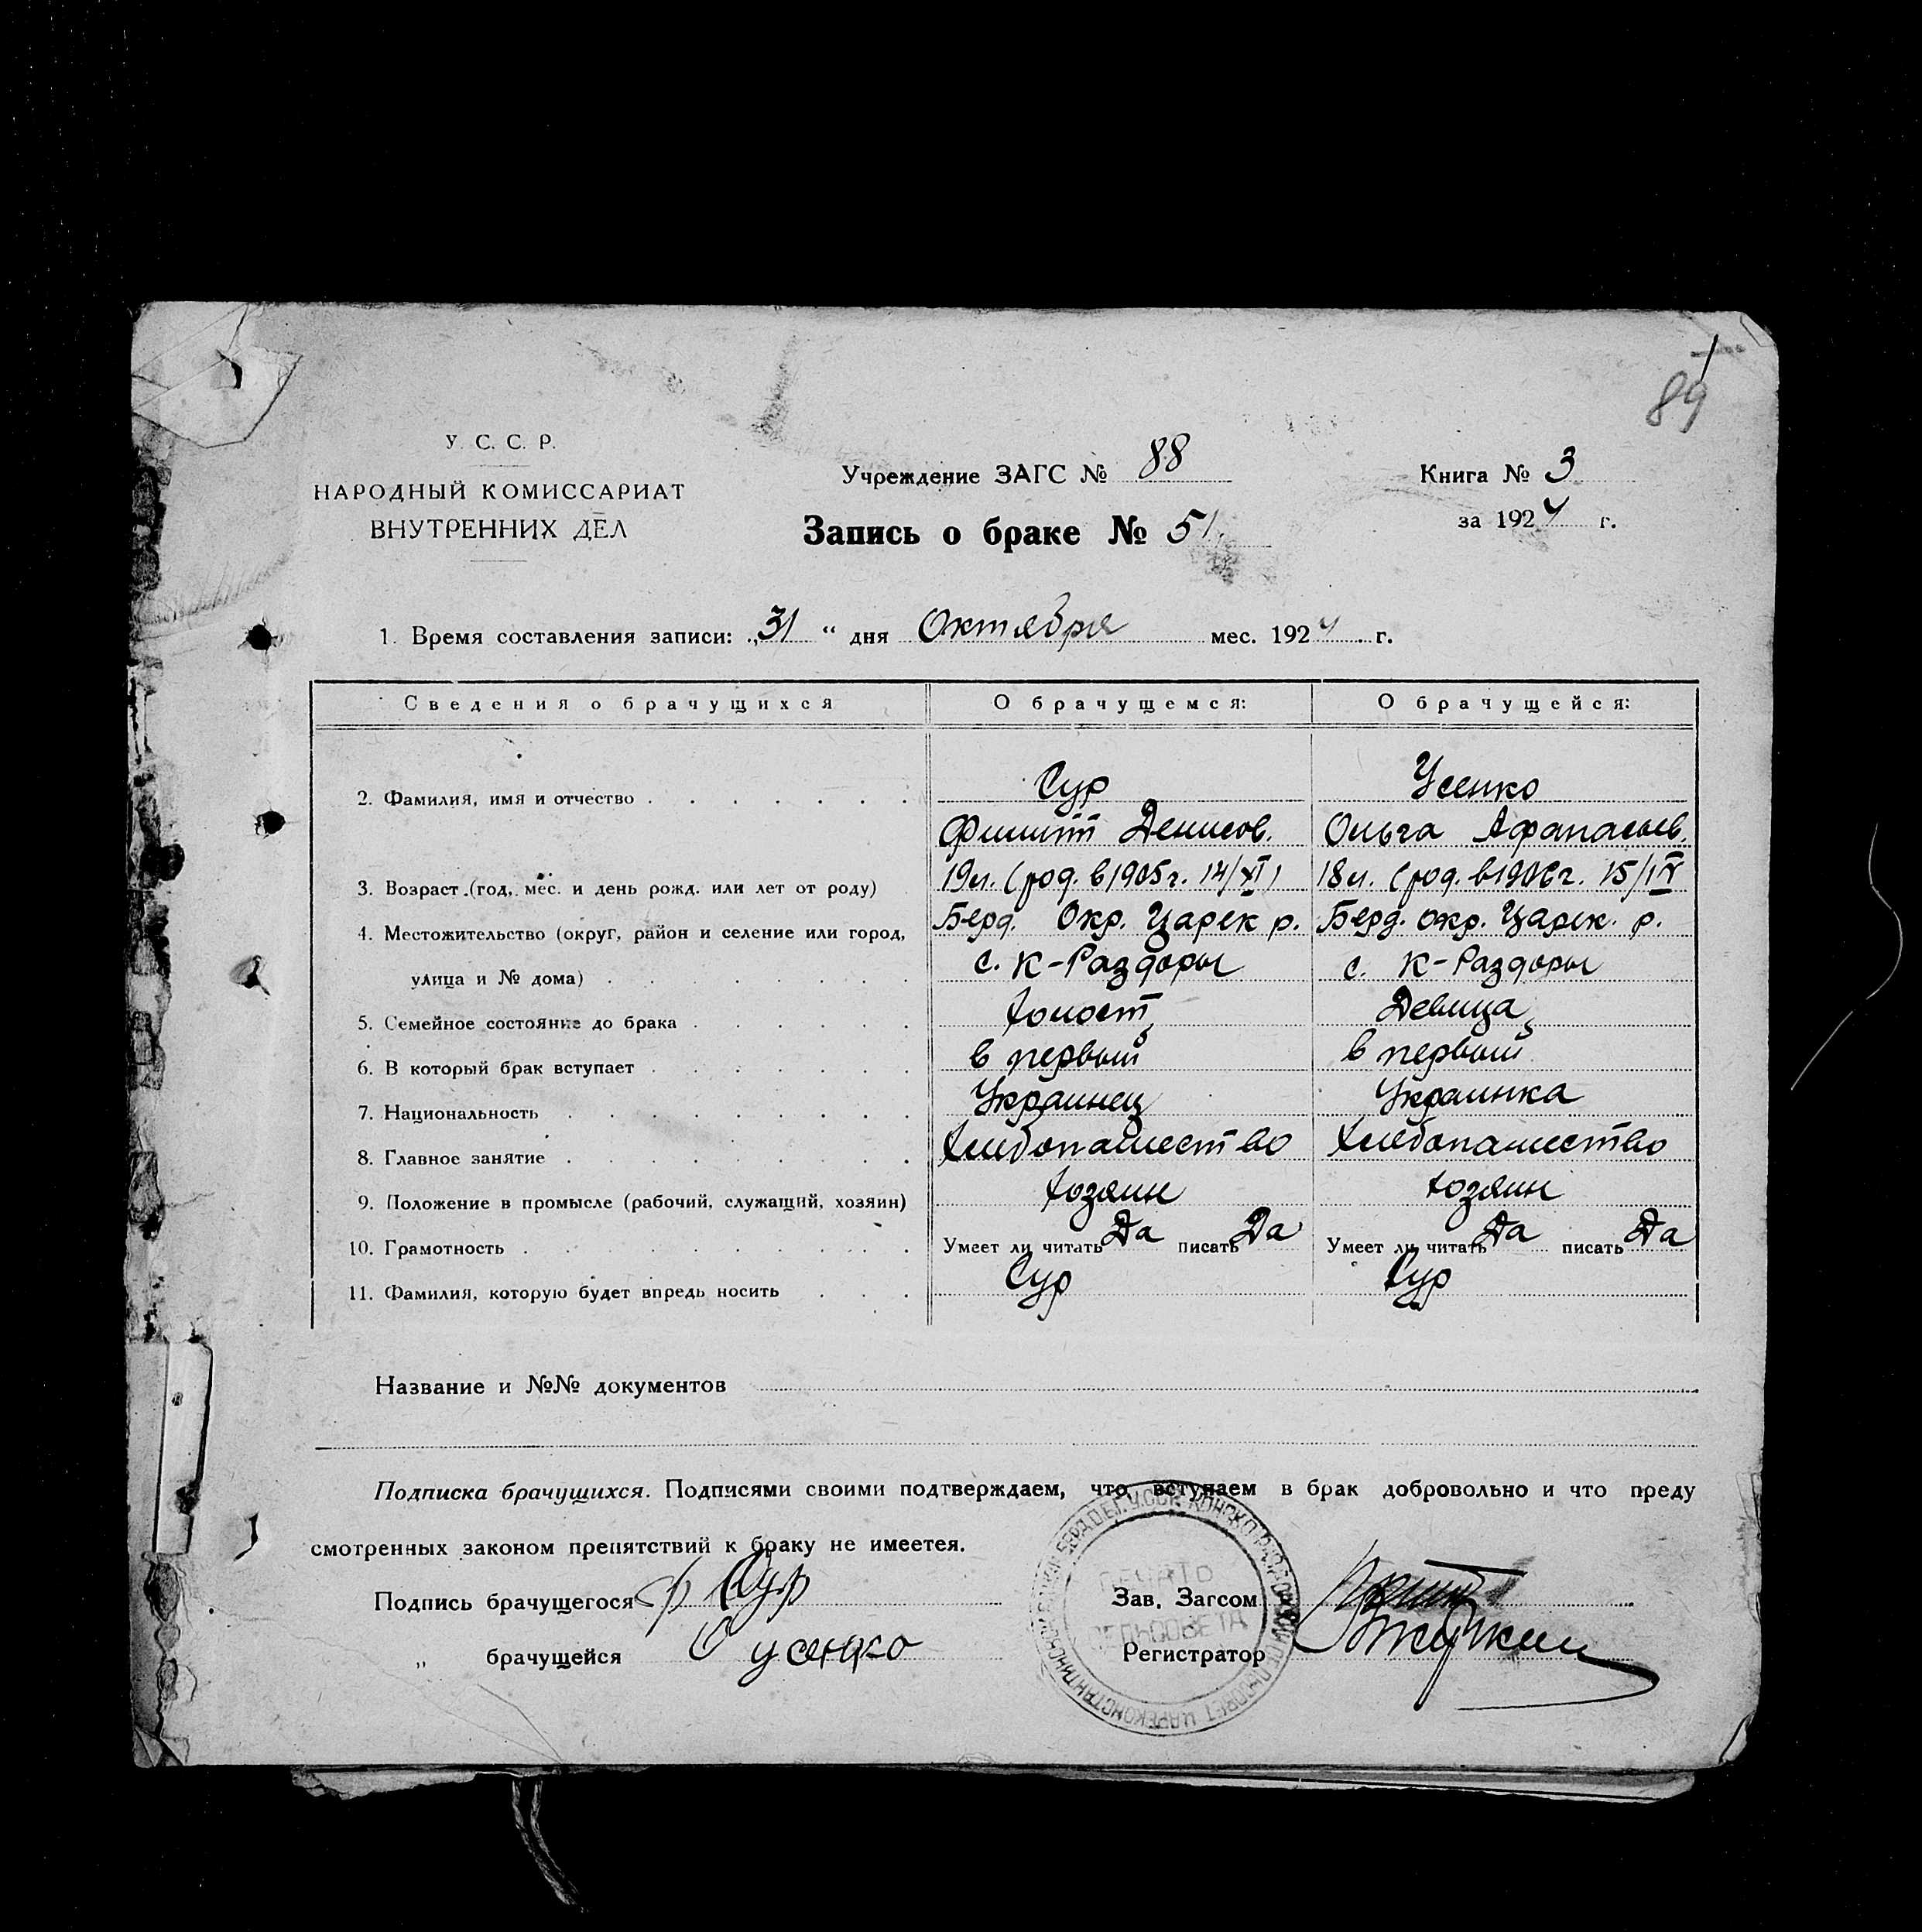 89
У. С. С. Р.
НАРОДНЫЙ КОМИССАРИАТ
ВНУТРЕННИХ ДЕЛ
Учреждение ЗАГС № 88
Книга № 3
Запись о браке № 51
за 1924 г.
1. Время составления записи: „31“ дня Октября мес. 1924 г.
Сведения о брачущихся О брачущемся: О брачущейся:
2. Фамилия, имя и отчество Сур Усенко
Филипп Денисов. Ольга Афанасьев.
3. Возраст (год, мес. и день рожд. или лет от роду) 19 л. (род. в 1905 г. 14/XI) 18 л. (род. в 1906 г. 15/IX
4. Местожительство (округ, район и селение или город, Берд. Окр. Царек р. Берд. окр. Царек. р.
улица и № дома) с. К-Раздоры с. К-Раздоры
5. Семейное состояние до брака Холост Девица
6. В который брак вступает в первый в первый
7. Национальность Украинец Украинка
8. Главное занятие Хлебопашество Хлебопашество
9. Положение в промысле (рабочий, служащий, хозяин) Хозяин Хозяин
10. Грамотность Умеет ли читать Да писать Да Умеет ли читать Да писать Да
11. Фамилия, которую будет впредь носить Сур Сур
Название и №№ документов
Подписка брачущихся. Подписями своими подтверждаем, что вступаем в брак добровольно и что преду
смотренных законом препятствий к браку не имеетея.
Подпись брачущегося Ф Сур Зав. Загсом
„ брачущейся О Усенко Регистратор
ПЕЧАТЬ
СЕЛЬСОВЕТА